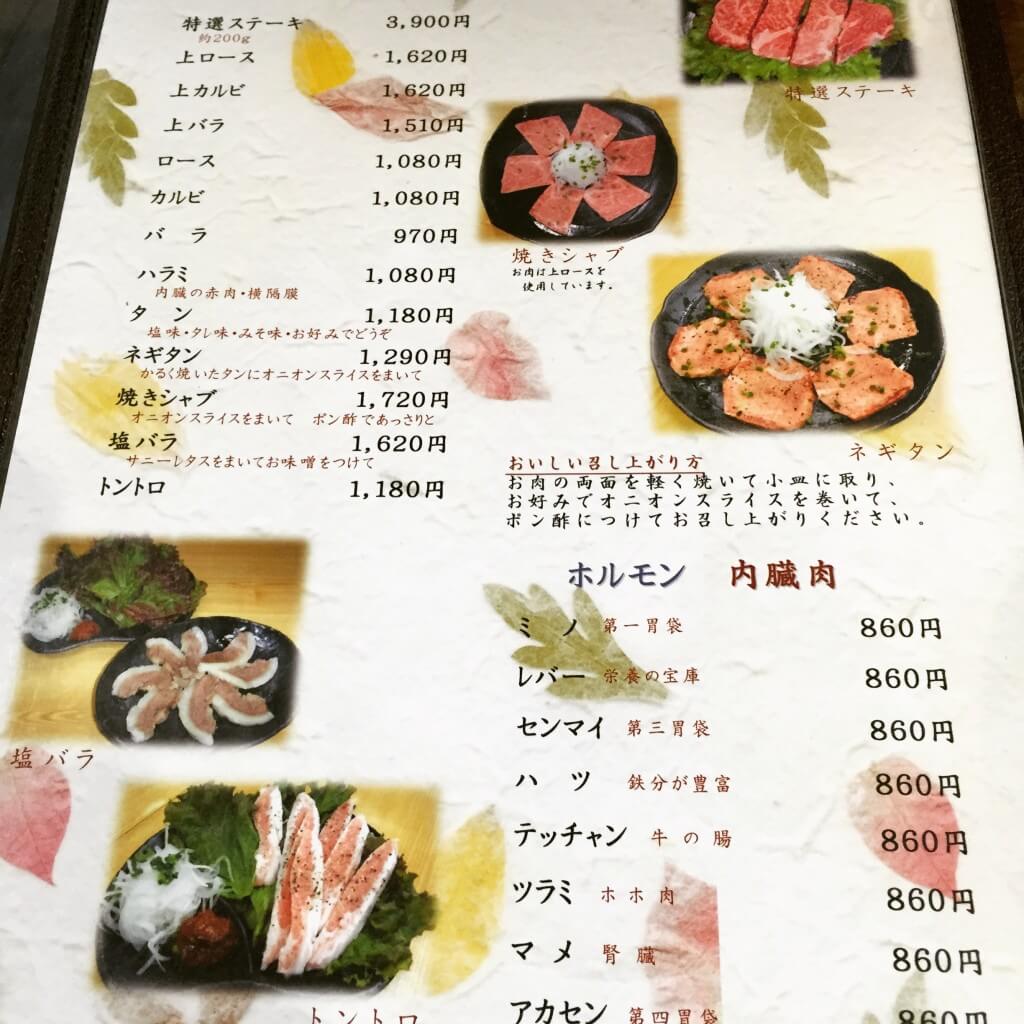 特選ステーキ 3,900円
約200g
上ロース 1,620円
上カルビ 1,620円
上バラ 1,510円
ロース 1,080円
カルビ 1,080円
バラ 970円
ハラミ 1,080円
内臓の赤肉・横隔膜
タン 1,180円
塩味・タレ味・みそ味・お好みでどうぞ
ネギタン 1,290円
かるく焼いたタンにオニオンスライスをまいて
焼きシャブ 1,720円
オニオンスライスをまいて ポン酢であっさりと
塩バラ 1,620円
サニーレタスをまいてお味噌をつけて
トントロ 1,180円
塩バラ
トントロ
特選ステーキ
焼きシャブ
お肉は上ロースを
使用しています。
ネギタン
おいしい召し上がり方
お肉の両面を軽く焼いて小皿に取り、
お好みでオニオンスライスを巻いて、
ポン酢につけてお召し上がりください。
ホルモン 内臓肉
ミノ 第一胃袋 860円
レバー 栄養の宝庫 860円
センマイ 第三胃袋 860円
ハツ 鉄分が豊富 860円
テッチャン 牛の腸 860円
ツラミ ホホ肉 860円
マメ 腎臓 860円
アカセン 第四胃袋 860円